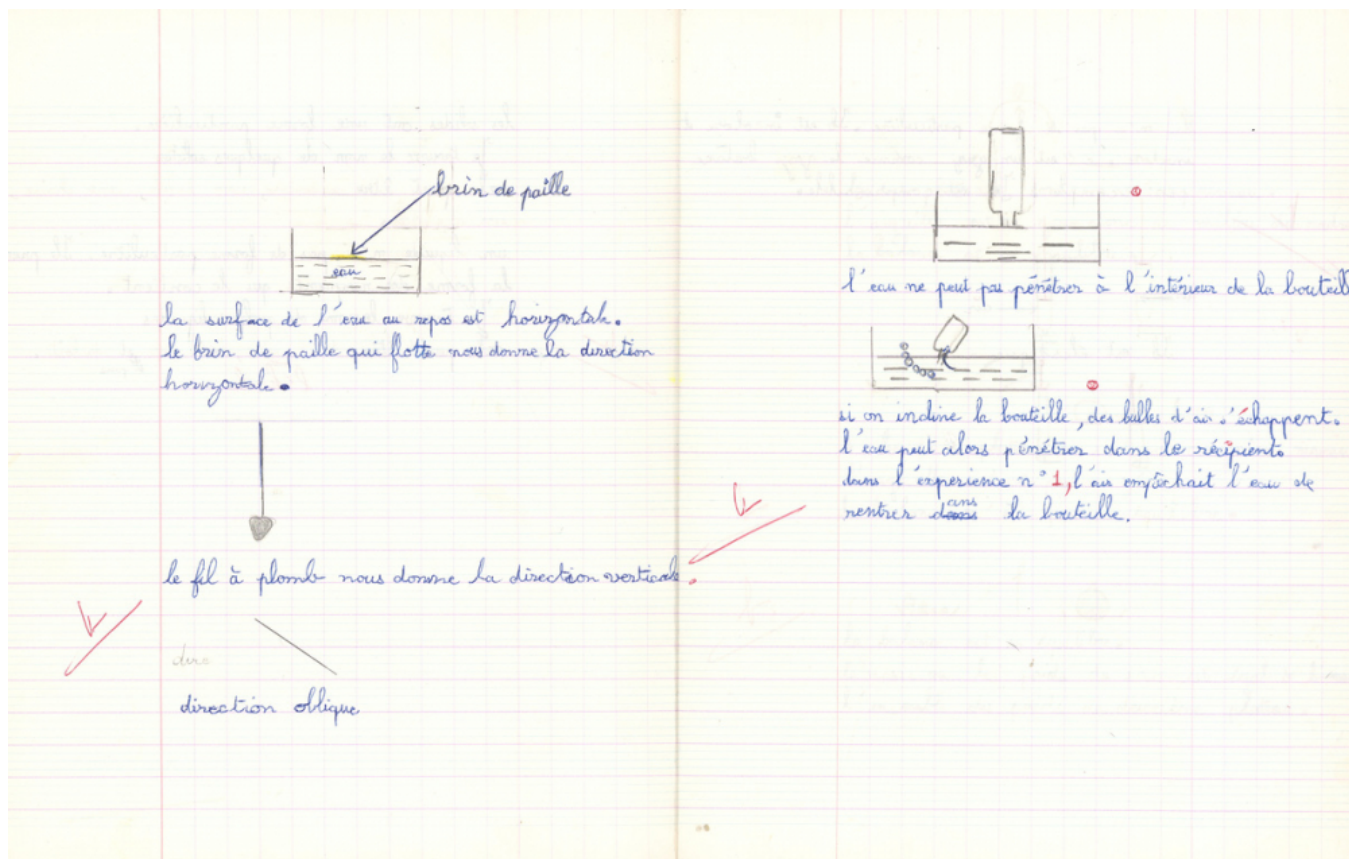 brin de paille
eau
la surface de l'eau au repos est horizontale.
le brin de paille qui flotte nous donne la direction
horizontale.
le fil à plomb nous donne la direction verticale.
dire
direction oblique
l'eau ne peut pas pénétrer à l'intérieur de la bouteill
si on incline la bouteille, des bulles d'air s'échappent.
l'eau peut alors pénétrer dans le récipient.
dans l'expérience n° 1, l'air empêchait l'eau de
rentrer dans la bouteille.